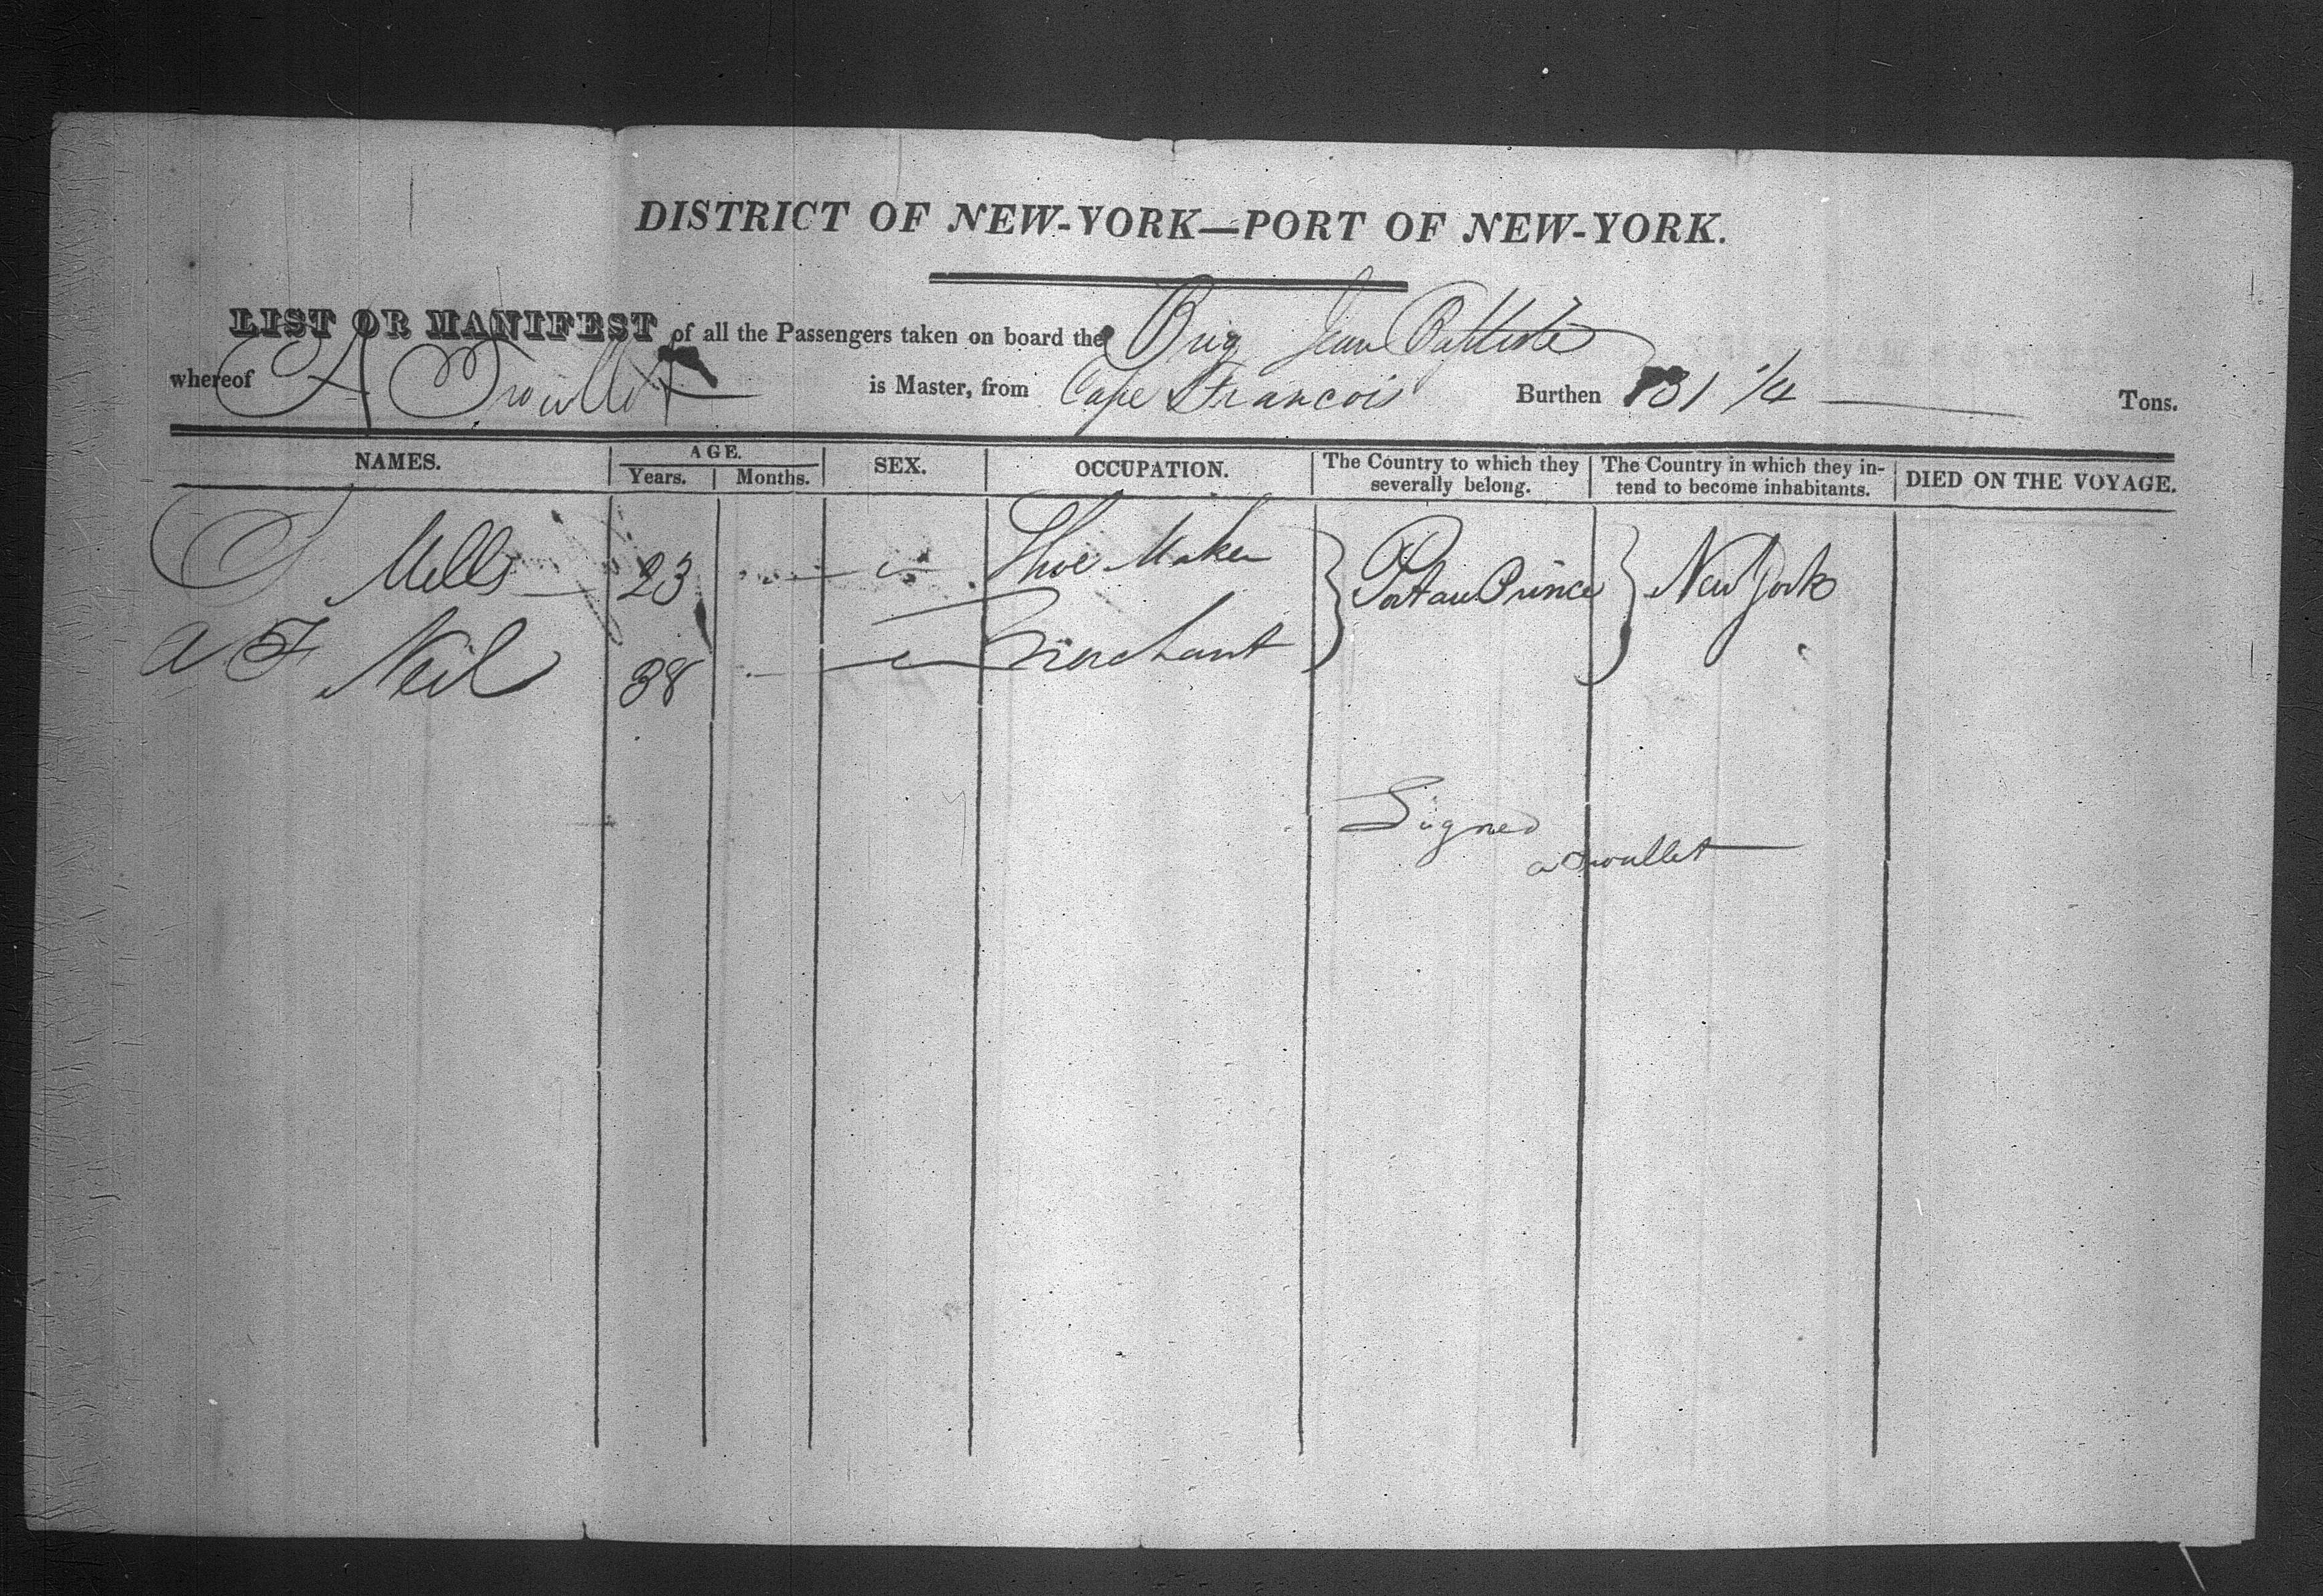 DISTRICT OF NEW-YORK—PORT OF NEW-YORK.
LIST OR MANIFEST of all the Passengers taken on board the Brig Jean Baptiste
whereof A Trouillet is Master, from Cape Francois Burthen 131 1/4 Tons.
NAMES. AGE. Years. Months. SEX. OCCUPATION. The Country to which they severally belong. The Country in which they intend to become inhabitants. DIED ON THE VOYAGE.
Mells 23 Shoe Maker Port au Prince New York
A F Neil 38 Merchant
Signed
a Trouillet